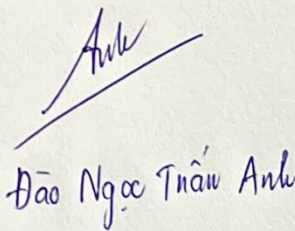 Anh
Đào Ngọc Tuấn Anh